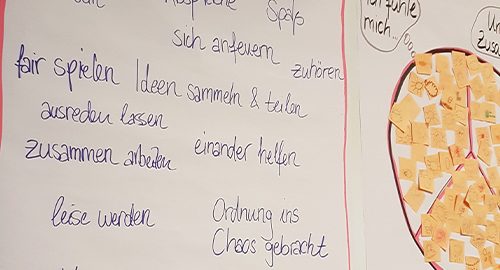 Spaß
sich anfeuern
zuhören
fair spielen
Ideen sammeln & teilen
ausreden lassen
zusammen arbeiten
einander helfen
leise werden
Ordnung ins
Chaos gebracht
fühle
mich...